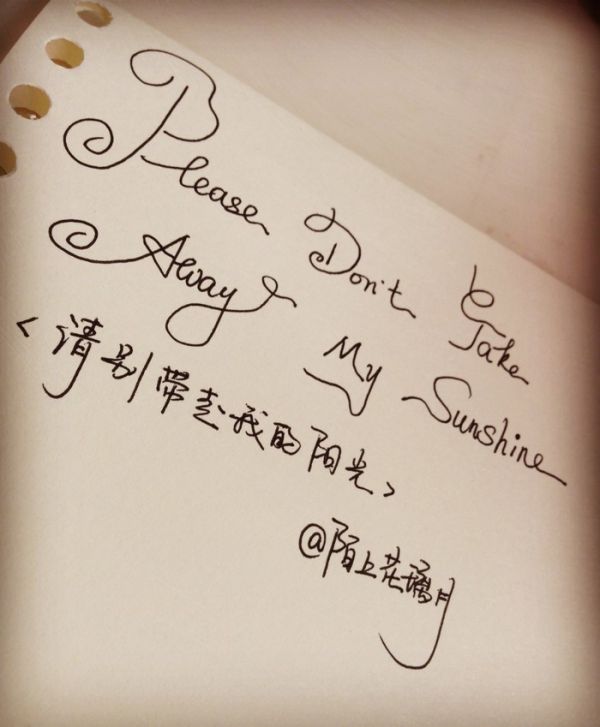 Please Don't Take
Away My Sunshine
<请别带走我的阳光>
@陌上花璃月